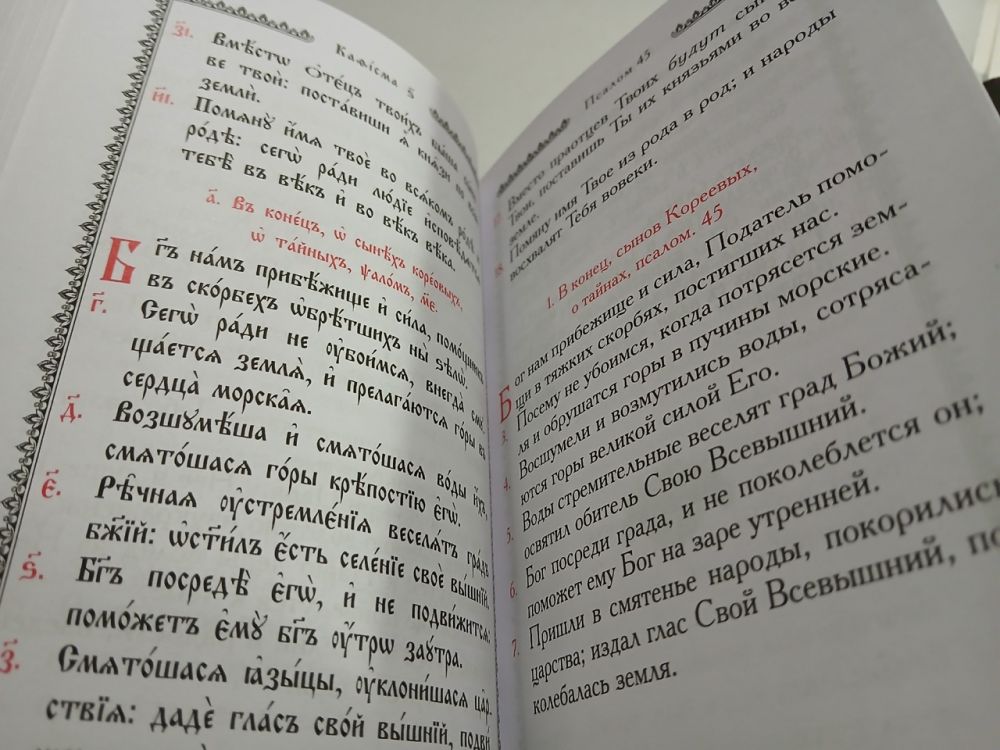 Каѳїсма ѕ҃
з҃і. Вмѣ́стѡ ѻ҆тє́цъ твои́хъ бы́ша
ве твоѝ: поста́виши ѧ҆̀ кнѧ̑зи по
землѝ.
и҃і. Помѧнꙋ̀ и҆́мѧ твоѐ во всѧ́комъ
ро́дѣ: сегѡ̀ ра́ди лю́дїе и҆сповѣ́дѧтсѧ
тебѣ̀ въ вѣ́къ и҆ во вѣ́къ вѣ́ка.
а҃. Въ коне́цъ, ѡ҆ сынѣ́хъ коре́овыхъ,
ѡ҆ та́йныхъ, ѱало́мъ, м҃е.
Бг҃ъ на́мъ прибѣ́жище и҆ си́ла, помо́щникъ
въ ско́рбехъ ѡ҆брѣ́тшихъ ны̀ ѕѣлѡ̀.
г҃. Сегѡ̀ ра́ди не ᲂу҆бои́мсѧ, внегда̀ смꙋ
ща́етсѧ землѧ̀, и҆ прелага́ютсѧ го́ры въ
сердца̀ морска̑ѧ.
д҃. Возшꙋмѣ́ша и҆ смѧто́шасѧ во́ды и҆́хъ,
смѧто́шасѧ го́ры крѣ́постїю є҆гѡ̀.
є҃. Рѣ́чнаѧ ᲂу҆стремлє́нїѧ веселѧ́тъ гра́дъ
бж҃їй: ѡ҆ст҃и́лъ є҆́сть селе́нїе своѐ вы́шнїй.
ѕ҃. Бг҃ъ посредѣ̀ є҆гѡ̀, и҆ не подви́житсѧ:
помо́жетъ є҆мꙋ̀ бг҃ъ ᲂу҆́трѡ заꙋ́тра.
з҃. Смѧто́шасѧ ꙗ҆зы́цы, ᲂу҆клони́шасѧ ца̑р
ствїѧ: дадѐ гла́съ сво́й вы́шнїй, подви́
Псалом 45
Вместо праотцев Твоих будут сыны
Твои, поставишь Ты их князьями во всей
земле.
18. Помяну имя Твое из рода в род; и народы
восхвалят Тебя вовеки.
1. В конец, сынов Кореевых,
о тайнах, псалом. 45
Бог нам прибежище и сила, Податель помо-
щи в тяжких скорбях, постигших нас.
3. Посему не убоимся, когда потрясется зем-
ля и обрушатся горы в пучины морские.
4. Восшумели и возмутились воды, сотряса-
ются горы великой силой Его.
5. Воды стремительные веселят град Божий;
освятил обитель Свою Всевышний.
6. Бог посреди града, и не поколеблется он;
поможет ему Бог на заре утренней.
7. Пришли в смятенье народы, покорились
царства; издал глас Свой Всевышний, по
колебалась земля.